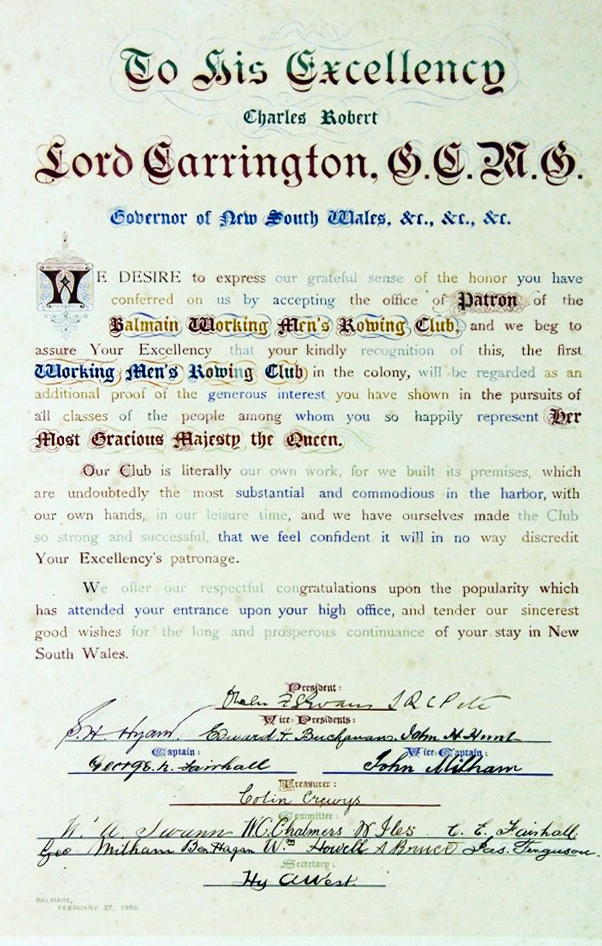 To His Excellency
Charles Robert
Lord Carrington, G.C.M.G.
Governor of New South Wales, &c., &c., &c.
WE DESIRE to express our grateful sense of the honor you have
conferred on us by accepting the office of Patron of the
Balmain Working Men's Rowing Club, and we beg to
assure Your Excellency that your kindly recognition of this, the first
Working Men's Rowing Club in the colony, will be regarded as an
additional proof of the generous interest you have shown in the pursuits of
all classes of the people among whom you so happily represent Her
Most Gracious Majesty the Queen.
Our Club is literally our own work, for we built its premises, which
are undoubtedly the most substantial and commodious in the harbor, with
our own hands, in our leisure time, and we have ourselves made the Club
so strong and successful, that we feel confident it will in no way discredit
Your Excellency's patronage.
We offer our respectful congratulations upon the popularity which
has attended your entrance upon your high office, and tender our sincerest
good wishes for the long and prosperous continuance of your stay in New
South Wales.
President:
Vice-Presidents:
S. H. Hyam. Edward H. Buchanan. John H Hunt
Captain: Vice-Captain:
George. R. Fairhall John Milham
Treasurer:
Colin Crewys
Committee:
W. A. Swann W C Chalmers W Iles C. E. Fairhall
Geo Milham Ben Hagan Wm Howell A Bruce Jas. Ferguson.
Secretary:
Hy A West.
BALMAIN,
FEBRUARY 27, 1886.